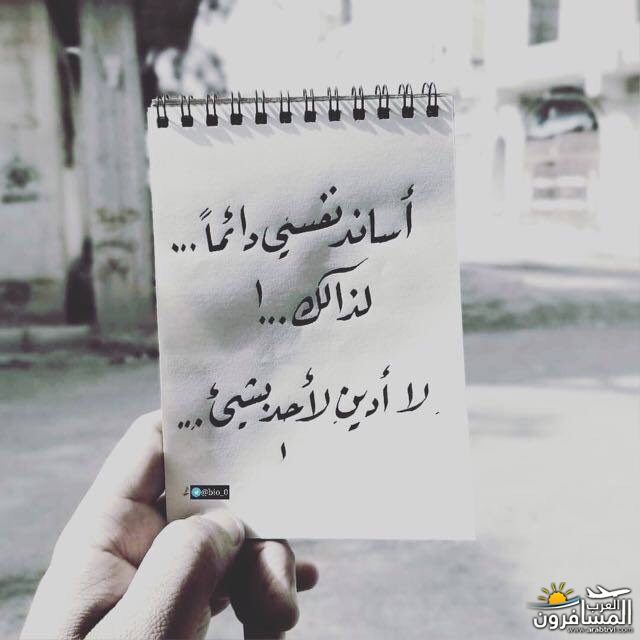 أساند نفسي دائماً...
لذالك...!
لا أدين لأحد بشيئ...
@bio_0
العرب
المسافرون
www.arabtrvl.com